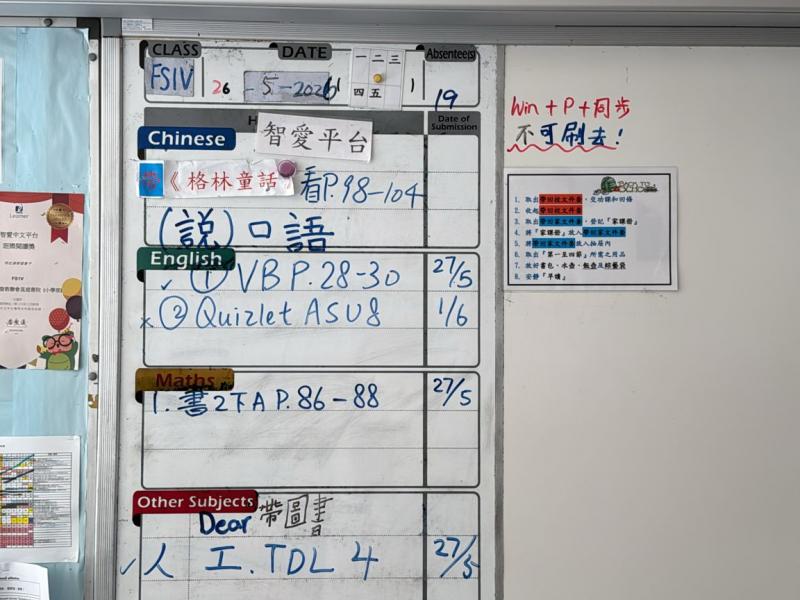 CLASS DATE Absentee(s)
FSIV 26 -5-2026 一 二 三 四 五 19
Date of Submission
Chinese 智愛平台
帶《格林童話》看P.98-104
(說)口語
English
✓ ① VB P.28-30 27/5
x ② Quizlet ASU8 1/6
Maths
1. 書2下A P.86-88 27/5
Other Subjects
Dear 帶圖書
✓ 人工.TDL 4 27/5
Win + P + 同步
不可刷去!
1. 取出帶回校文件套,交功課和回條
2. 收起帶回校文件套
3. 取出帶回家文件套,登記「家課冊」
4. 將「家課冊」放入帶回家文件套
5. 將帶回家文件套放入抽屜內
6. 取出「第一至四節」所需之用品
7. 放好書包、水壺、飯壺及綜藝袋
8. 安靜「早讀」
Learner
智愛中文平台
FSIV